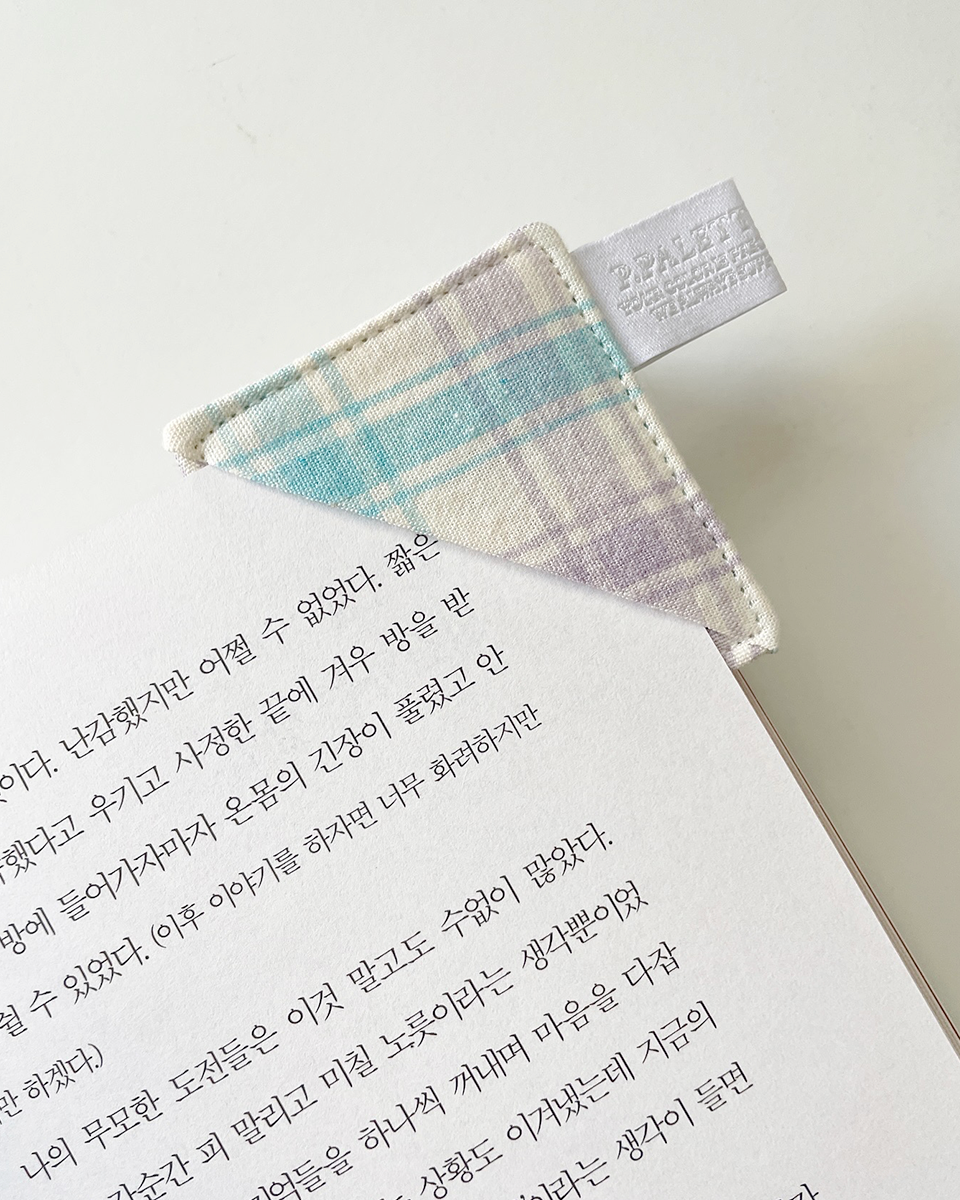 P.PALETT
YOUR COLOR IS
WE ALWAYS
어쩔 수 없었다. 짧은
이다. 난감했지만
했다고 우기고 사정한 끝에 겨우 방을 반
방에 들어가자마자 온몸의 긴장이 풀렸고 안
수 있었다. (이후 이야기를 하자면 너무 화려하지만
만 하겠다.)
나의 무모한 도전들은 이것 말고도 수없이 많았다.
순간 피 말리고 미칠 노릇이라는 생각뿐이었
억들을 하나씩 꺼내며 마음을 다잡
상황도 이겨냈는데 지금의
이라는 생각이 들면